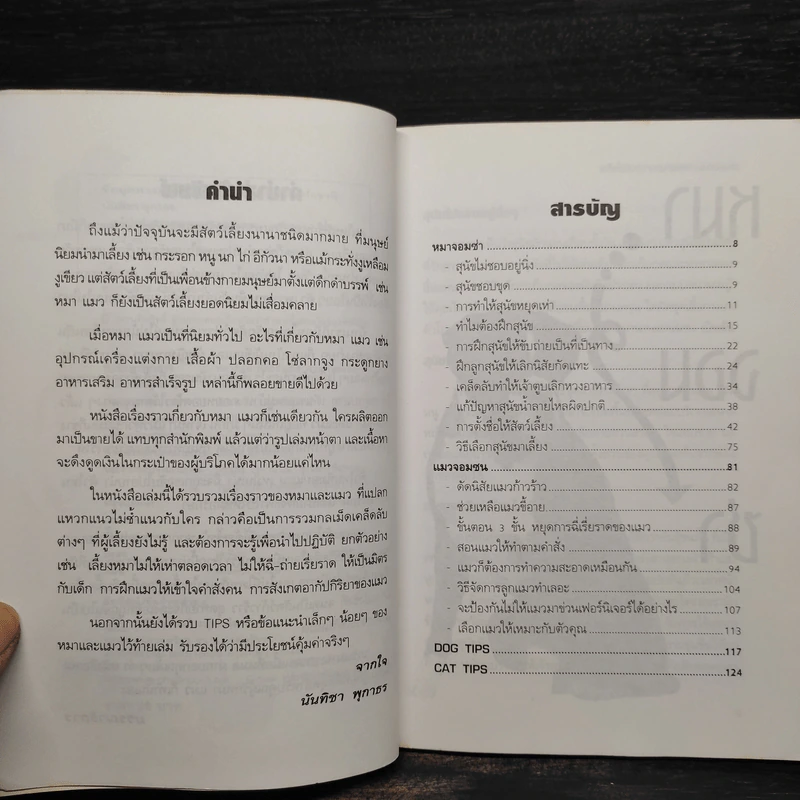 คำนำ
ถึงแม้ว่าปัจจุบันจะมีสัตว์เลี้ยงนานาชนิดมากมาย ที่มนุษย์
นิยมนำมาเลี้ยง เช่น กระรอก หนู นก ไก่ อีกัวนา หรือแม้กระทั่งงูเหลือม
งูเขียว แต่สัตว์เลี้ยงที่เป็นเพื่อนข้างกายมนุษย์มาตั้งแต่ดึกดำบรรพ์ เช่น
หมา แมว ก็ยังเป็นสัตว์เลี้ยงยอดนิยมไม่เสื่อมคลาย
เมื่อหมา แมวเป็นที่นิยมทั่วไป อะไรที่เกี่ยวกับหมา แมว เช่น
อุปกรณ์เครื่องแต่งกาย เสื้อผ้า ปลอกคอ โซ่ลากจูง กระดูกยาง
อาหารเสริม อาหารสำเร็จรูป เหล่านี้ก็พลอยขายดีไปด้วย
หนังสือเรื่องราวเกี่ยวกับหมา แมวก็เช่นเดียวกัน ใครผลิตออก
มาเป็นขายได้ แทบทุกสำนักพิมพ์ แล้วแต่ว่ารูปเล่มหน้าตา และเนื้อหา
จะดึงดูดเงินในกระเป๋าของผู้บริโภคได้มากน้อยแค่ไหน
ในหนังสือเล่มนี้ได้รวบรวมเรื่องราวของหมาและแมว ที่แปลก
แหวกแนวไม่ซ้ำแนวกับใคร กล่าวคือเป็นการรวมกลเม็ดเคล็ดลับ
ต่างๆ ที่ผู้เลี้ยงยังไม่รู้ และต้องการจะรู้เพื่อนำไปปฏิบัติ ยกตัวอย่าง
เช่น เลี้ยงหมาไม่ให้เห่าตลอดเวลา ไม่ให้ฉี่-ถ่ายเรี่ยราด ให้เป็นมิตร
กับเด็ก การฝึกแมวให้เข้าใจคำสั่งคน การสังเกตอากัปกิริยาของแมว
นอกจากนั้นยังได้รวบ TIPS หรือข้อแนะนำเล็กๆ น้อยๆ ของ
หมาและแมวไว้ท้ายเล่ม รับรองได้ว่ามีประโยชน์คุ้มค่าจริงๆ
จากใจ
นันทิชา พุกาธร
สารบัญ
หมาจอมซ่า 8
- สุนัขไม่ชอบอยู่นิ่ง 9
- สุนัขชอบขุด 9
- การทำให้สุนัขหยุดเห่า 11
- ทำไมต้องฝึกสุนัข 15
- การฝึกสุนัขให้ขับถ่ายเป็นที่เป็นทาง 22
- ฝึกลูกสุนัขให้เลิกนิสัยกัดแทะ 24
- เคล็ดลับทำให้เจ้าตูบเลิกหวงอาหาร 34
- แก้ปัญหาสุนัขน้ำลายไหลผิดปกติ 38
- การตั้งชื่อให้สัตว์เลี้ยง 42
- วิธีเลือกสุนัขมาเลี้ยง 75
แมวจอมซน 81
- ดัดนิสัยแมวก้าวร้าว 82
- ช่วยเหลือแมวขี้อาย 87
- ขั้นตอน 3 ขั้น หยุดการฉี่เรี่ยราดของแมว 88
- สอนแมวให้ทำตามคำสั่ง 89
- แมวก็ต้องการทำความสะอาดเหมือนกัน 94
- วิธีจัดการลูกแมวทำเลอะ 104
- จะป้องกันไม่ให้แมวมาข่วนเฟอร์นิเจอร์ได้อย่างไร 107
- เลือกแมวให้เหมาะกับตัวคุณ 113
DOG TIPS 117
CAT TIPS 124